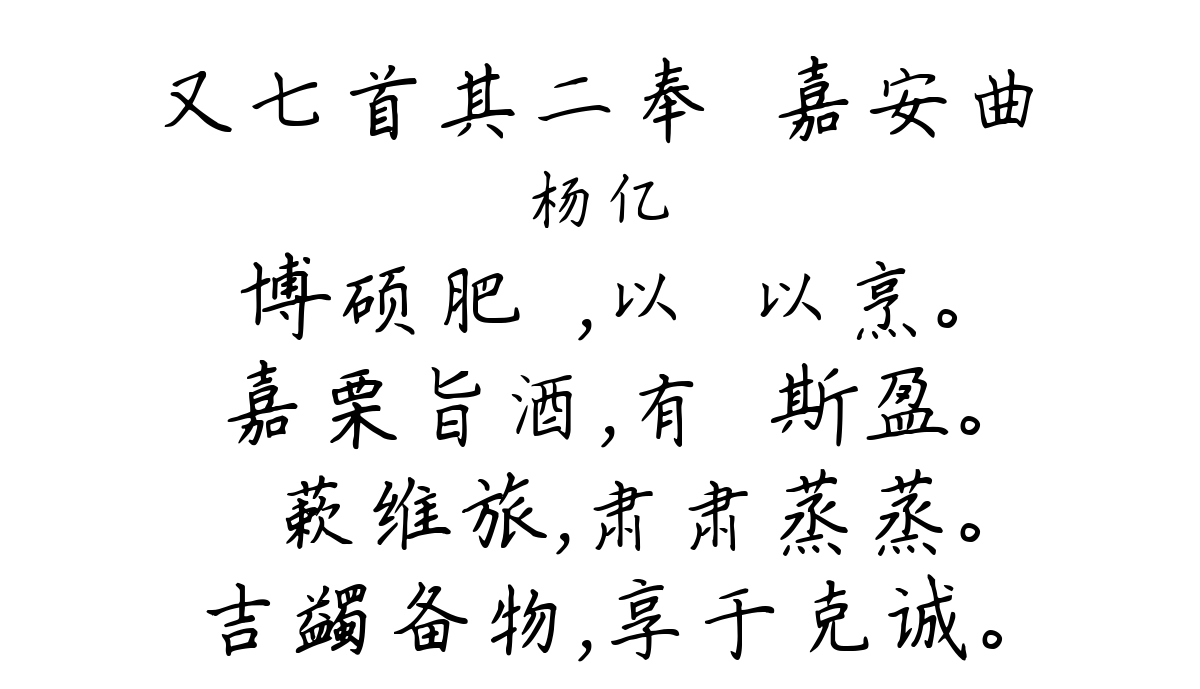 又七首其二奉 嘉安曲
杨亿
博硕肥 ,以 以烹。
嘉栗旨酒,有 斯盈。
蔌维旅,肃肃蒸蒸。
吉蠲备物,享于克诚。